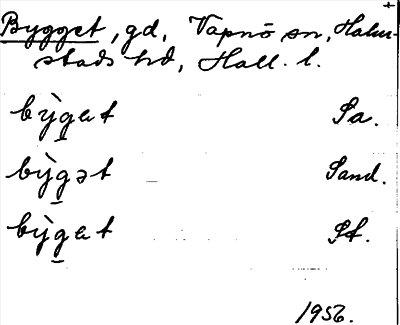 Bygget, gd, Vapnö sn, Halm-
stads hd, Hall. l.
bỳg̠et Sa.
bỳg̠ət Sand.
bỳg̠et St.
1956.